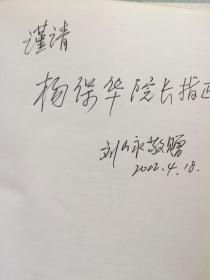 谨请
杨保华院长指正
刘永敬赠
2002.4.18.